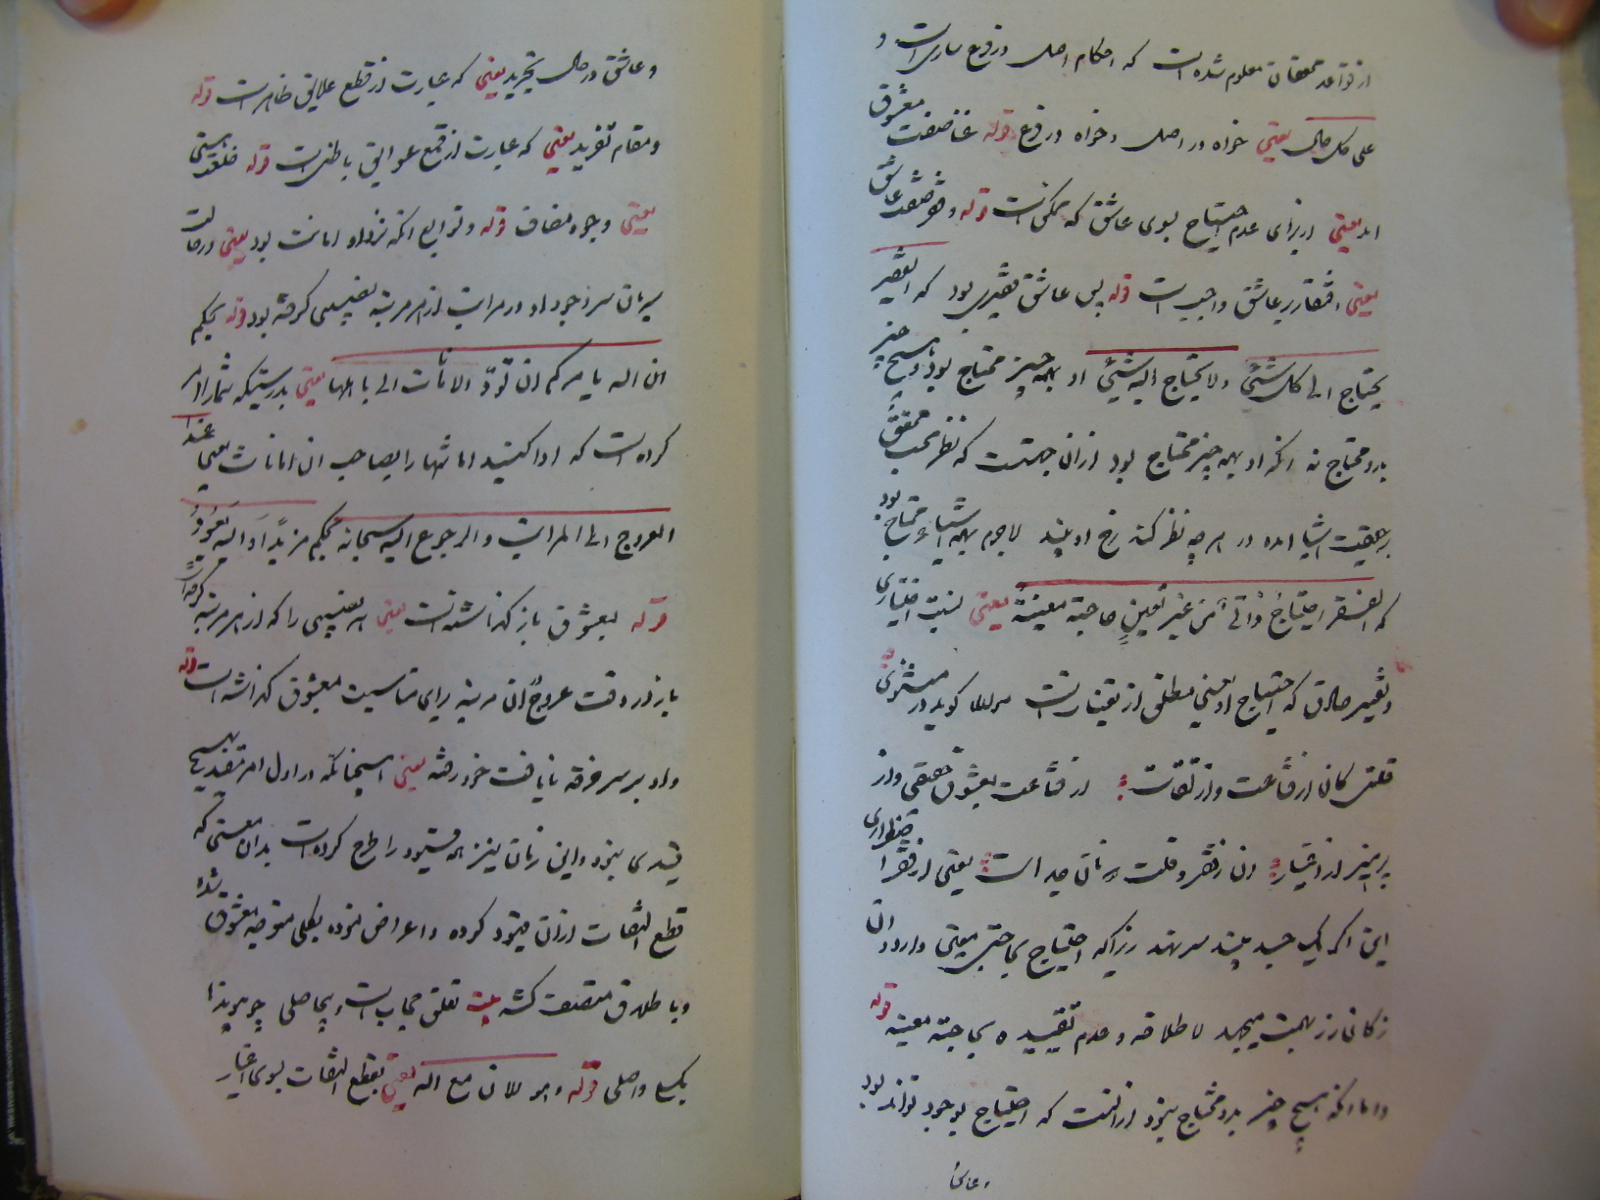 از قواعد محققان معلوم شده است که احکام اصل در فرع ساری است و
علی کل حال یعنی خواه در اصل و خواه در فرع قوله غنا صفت معشوق
امد یعنی از برای عدم احتیاج بوی عاشق که ممکن است قوله و فقر صفت عاشق
یعنی افتقار بر عاشق واجب است قوله پس عاشق فقیری بود که الفقیر
یحتاج الی کل شیئ ولا یحتاج الیه شیئ او بهمه چیز محتاج بود و هیچ چیز
بدو محتاج نه انکه او بهمه چیز محتاج بود از ان جهتست که نظر محب محقق
بر حقیقت اشیا امده در هر چه نظر کند رخ او بیند لاجرم بهمه اشیاء محتاج بود
که الفقر احتیاج ذاتی من غیر تعیین حاجة معینة یعنی نسبت اختیاری
و فقیر صادق که احتیاج او یعنی مطلق از تعینات است مولانا کوید در مثنوی
قلتی کان از قناعت وز تقات است از قناعت بمعشوق حقیقی و از
پرهیز از اختیار ان ز فقر و قلت دونان جداست یعنی از فقر اضطراری
این اکر یک حبه بیند سر نهد زیراکه احتیاج بحاجتی معین دارد و ان
ز کان زر بهمت میجهد لاطلاقه و عدم تقییده بحاجة معینة قوله
و اما انکه هیچ چیز بدو محتاج نبود از انست که احتیاج بوجود تواند بود
و عاشق
و عاشق در حال تجرید یعنی که عبارت از قطع علایق ظاهر است قوله
و مقام تفرید یعنی که عبارت از قمع عوایق باطن است قوله خلعت هستی
یعنی وجود مضاف قوله و توابع انکه نزد او امانت بود یعنی در حالت
سریان سر وجود او در مراتب از هر مرتبه نصیبی کرفته بود قوله بحکم
ان الله یامرکم ان تودّوا الامانات الی اهلها یعنی بدرستیکه شما را امر
کرده است که ادا کنید امانتها را بصاحب ان امانات یعنی عند
العروج الی المراتب و الرجوع الیه سبحانه بحکم منه بدا و الیه یعود
قوله بمعشوق باز کذاشته است یعنی هر نصیبی را که از هر مرتبه کرفته است
باز در وقت عروج ان مرتبه برای مناسبت معشوق کذاشته است قوله
و او بر سر خرقه نایافت خود رفته یعنی همچنانکه در اول امر مقید بهیچ
قیدی نبود و این زمان نیز همه قیود را طرح کرده است بدان معنی که
قطع التفات از ان قیود کرده و اعراض نموده بکلی متوجه معشوق شده
و باطلاق متصف کشته بیت تعلق حجاب است و بیحاصلی چو پیوندها
بکسلی واصلی قوله و هو الان مع الله یعنی بقطع التفات بوی اغیار